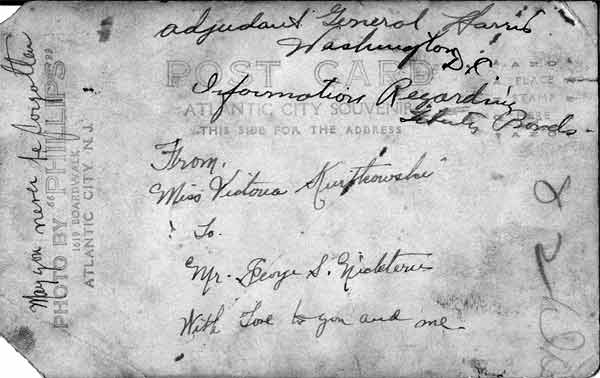 adjudant General Harris
Washington
D.C.
Information Regarding
Liberty Bonds.
POST CARD
PLACE
STAMP
HERE
AZO
ATLANTIC CITY SOUVENIR
THIS SIDE FOR THE ADDRESS
May you never be forgotten
PHOTO BY "PHILLIPS"
1619 BOARDWALK
ATLANTIC CITY N.J.
From.
Miss Victoria
To.
Mr. George S.
With Love to you and me.